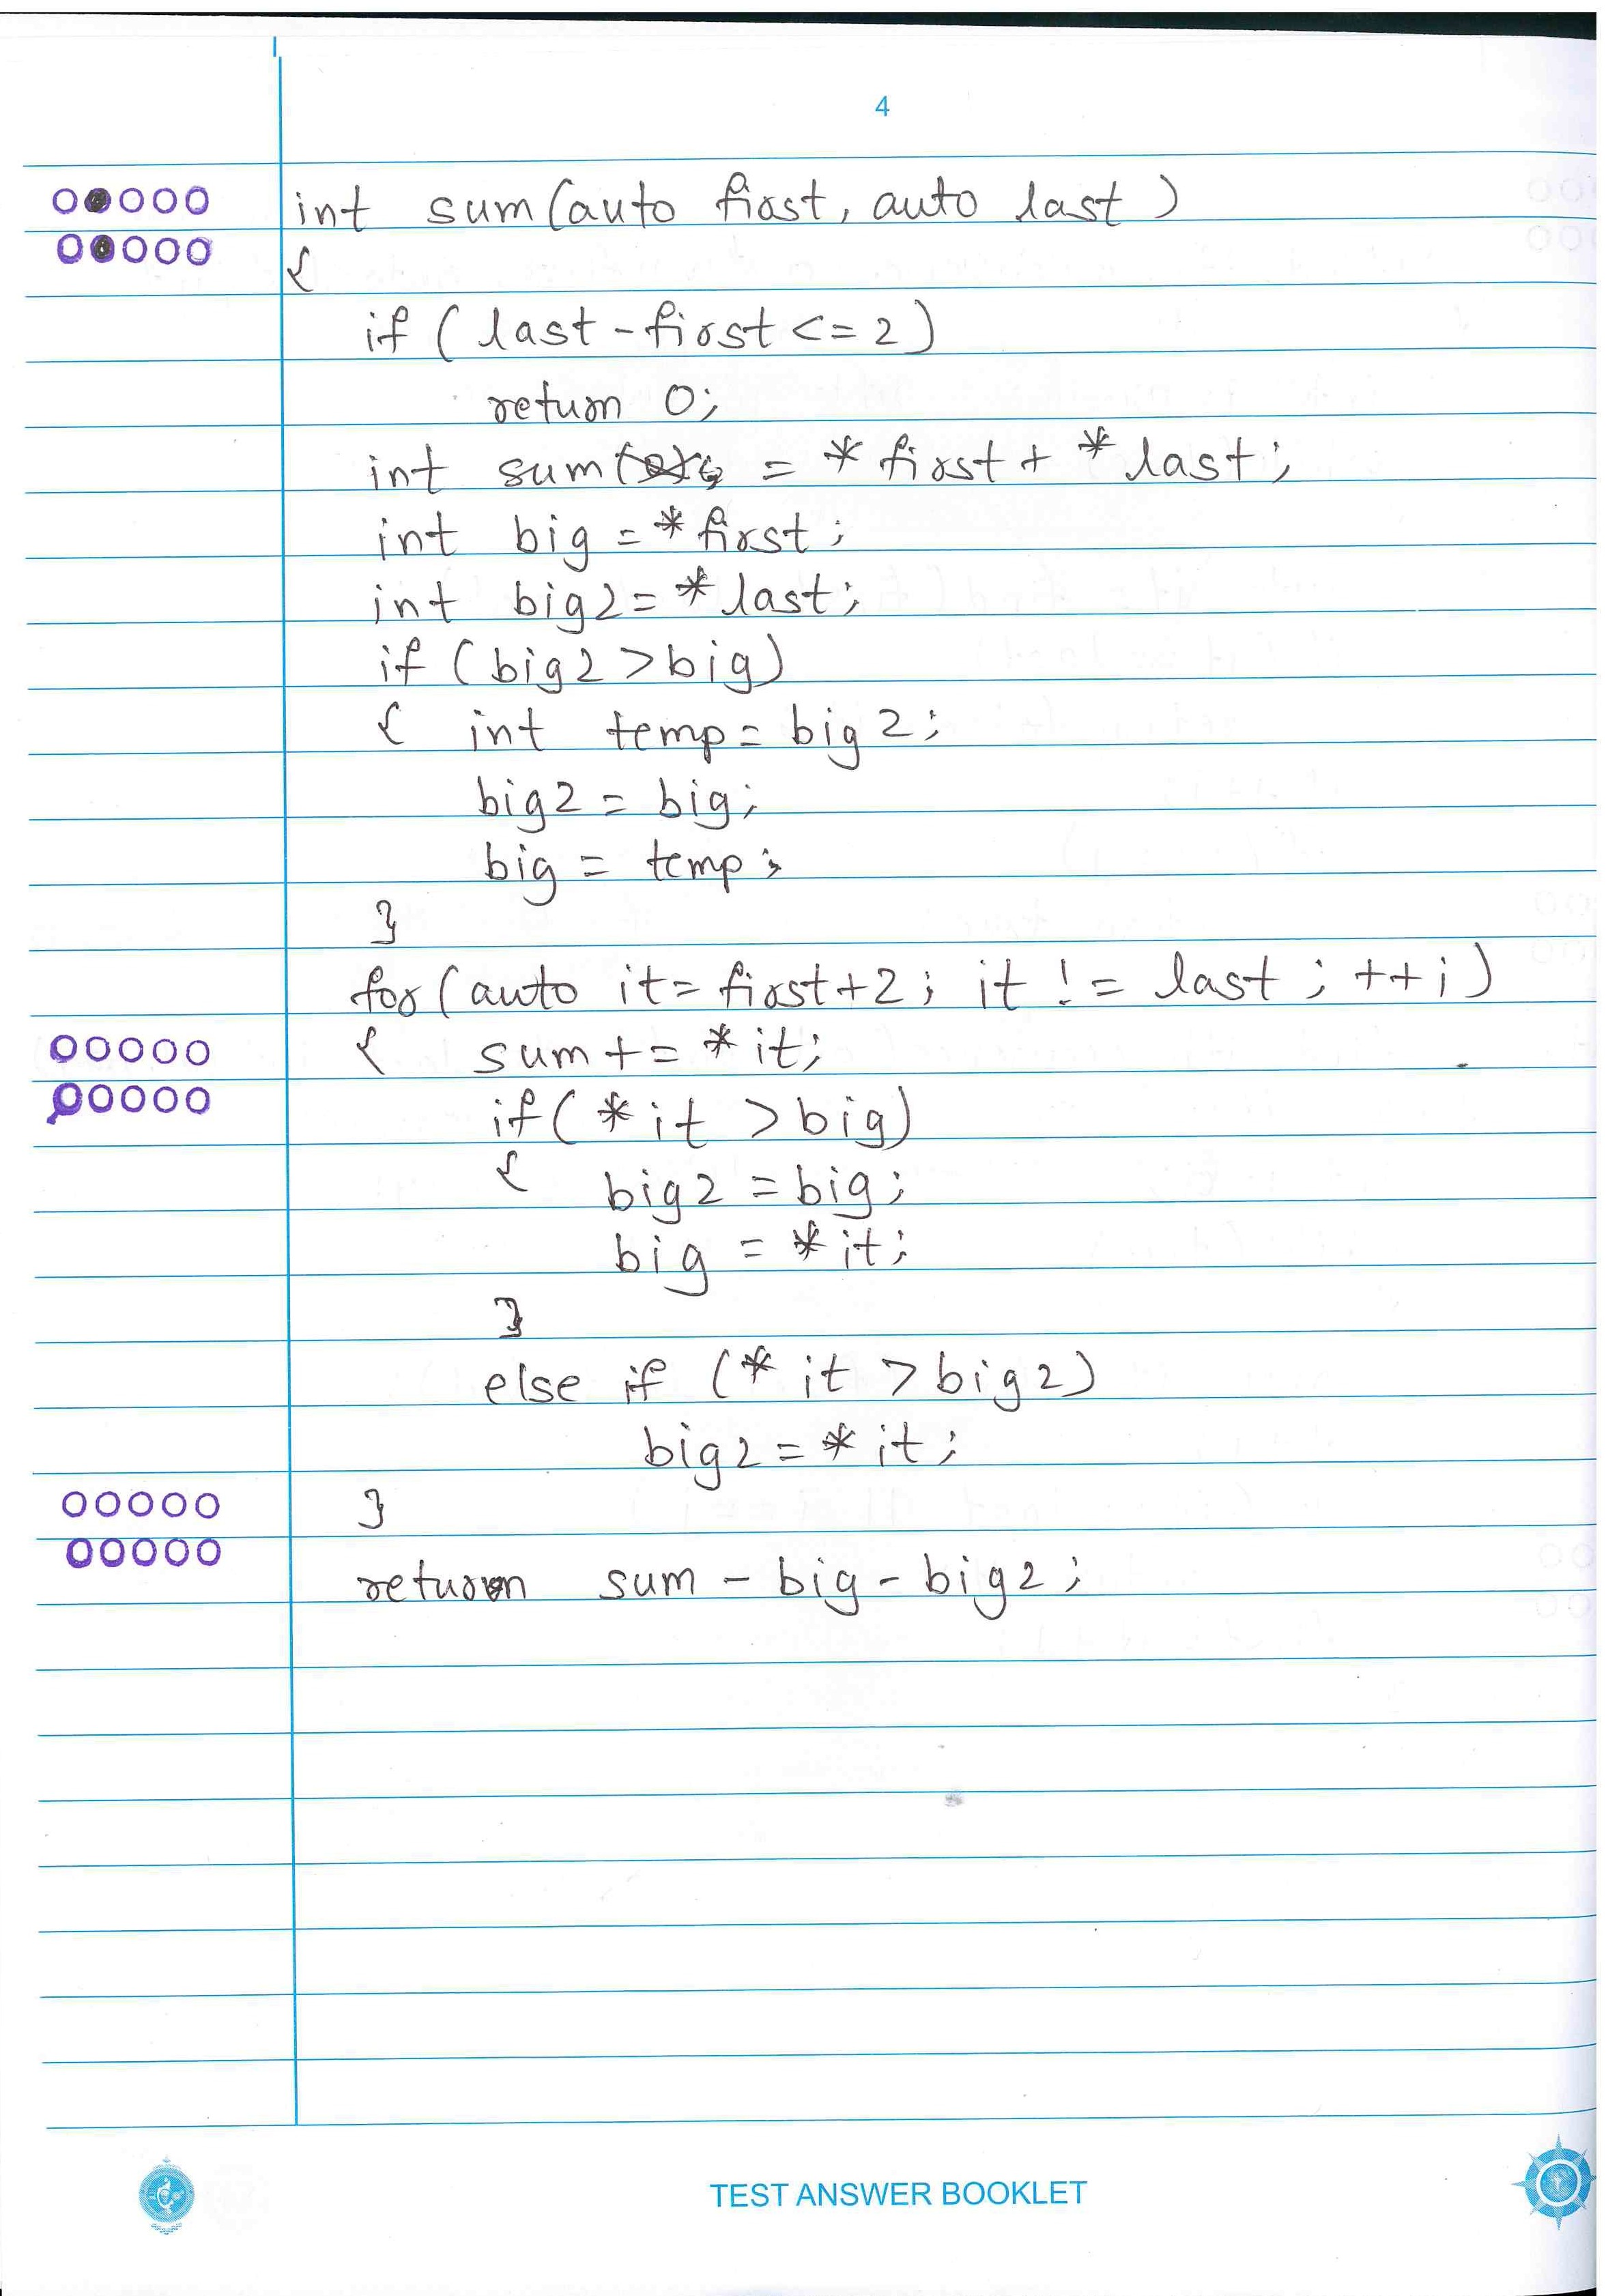 4
int sum(auto first, auto last)
{
if (last-first <= 2)
return 0;
int sum = *first + *last;
int big = *first;
int big2 = *last;
if (big2 > big)
{ int temp = big2;
big2 = big;
big = temp;
}
for(auto it = first+2; it != last; ++i)
{ sum += *it;
if(*it > big)
{ big2 = big;
big = *it;
}
else if (*it > big2)
big2 = *it;
}
return sum - big - big2;
TEST ANSWER BOOKLET